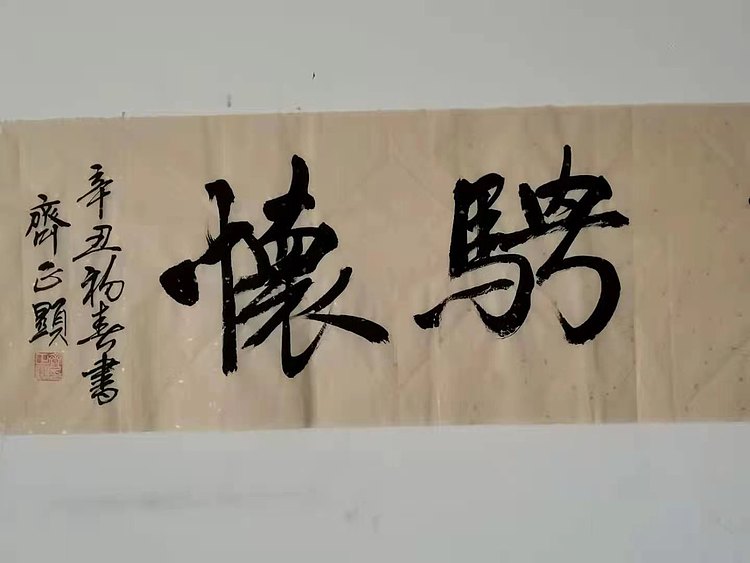 骋懷
辛丑初春書
齊正顯